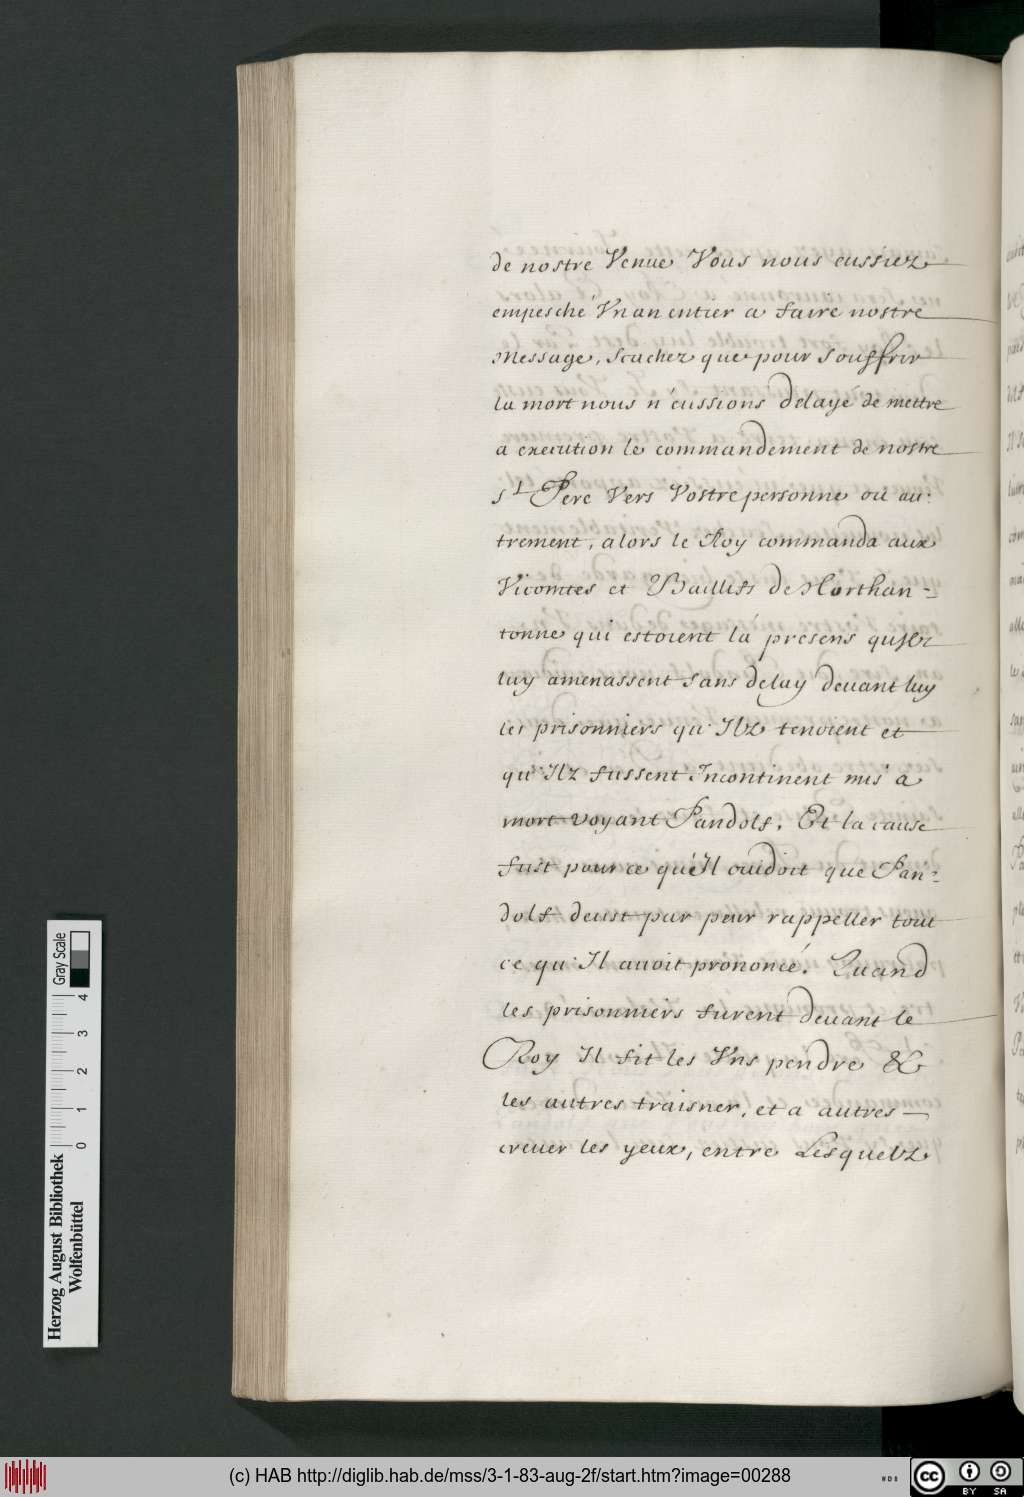 de nostre Venue Vous nous eussiez
empesché Vn an entier a faire nostre
Message, scachez que pour souffrir
la mort nous n'eussions delayé de mettre
a execution le commandement de nostre
st Pere Vers Vostre personne ou au:
trement, alors le Roy commanda aux
Vicomtes et Baillifs de Northan-
tonne qui estoient la presens qu'Ilz
luy amenassent sans delay deuant luy
les prisonniers qu'Ilz tenoient et
qu'Ilz fussent Incontinent mis a
mort voyant Pandolf. Et la cause
fust pour ce qu'Il cuidoit que Pan-
dolf deust par peur rappeller tout
ce qu'Il auoit prononcé. Quand
les prisonniers furent deuant le
Roy Il fit les Vns pendre &
les autres traisner, et a autres
creuer les yeux, entre Lesquelz
Herzog August Bibliothek
Wolfenbüttel
0 1 2 3 4
Gray Scale
(c) HAB http://diglib.hab.de/mss/3-1-83-aug-2f/start.htm?image=00288
WDB
cc BY SA